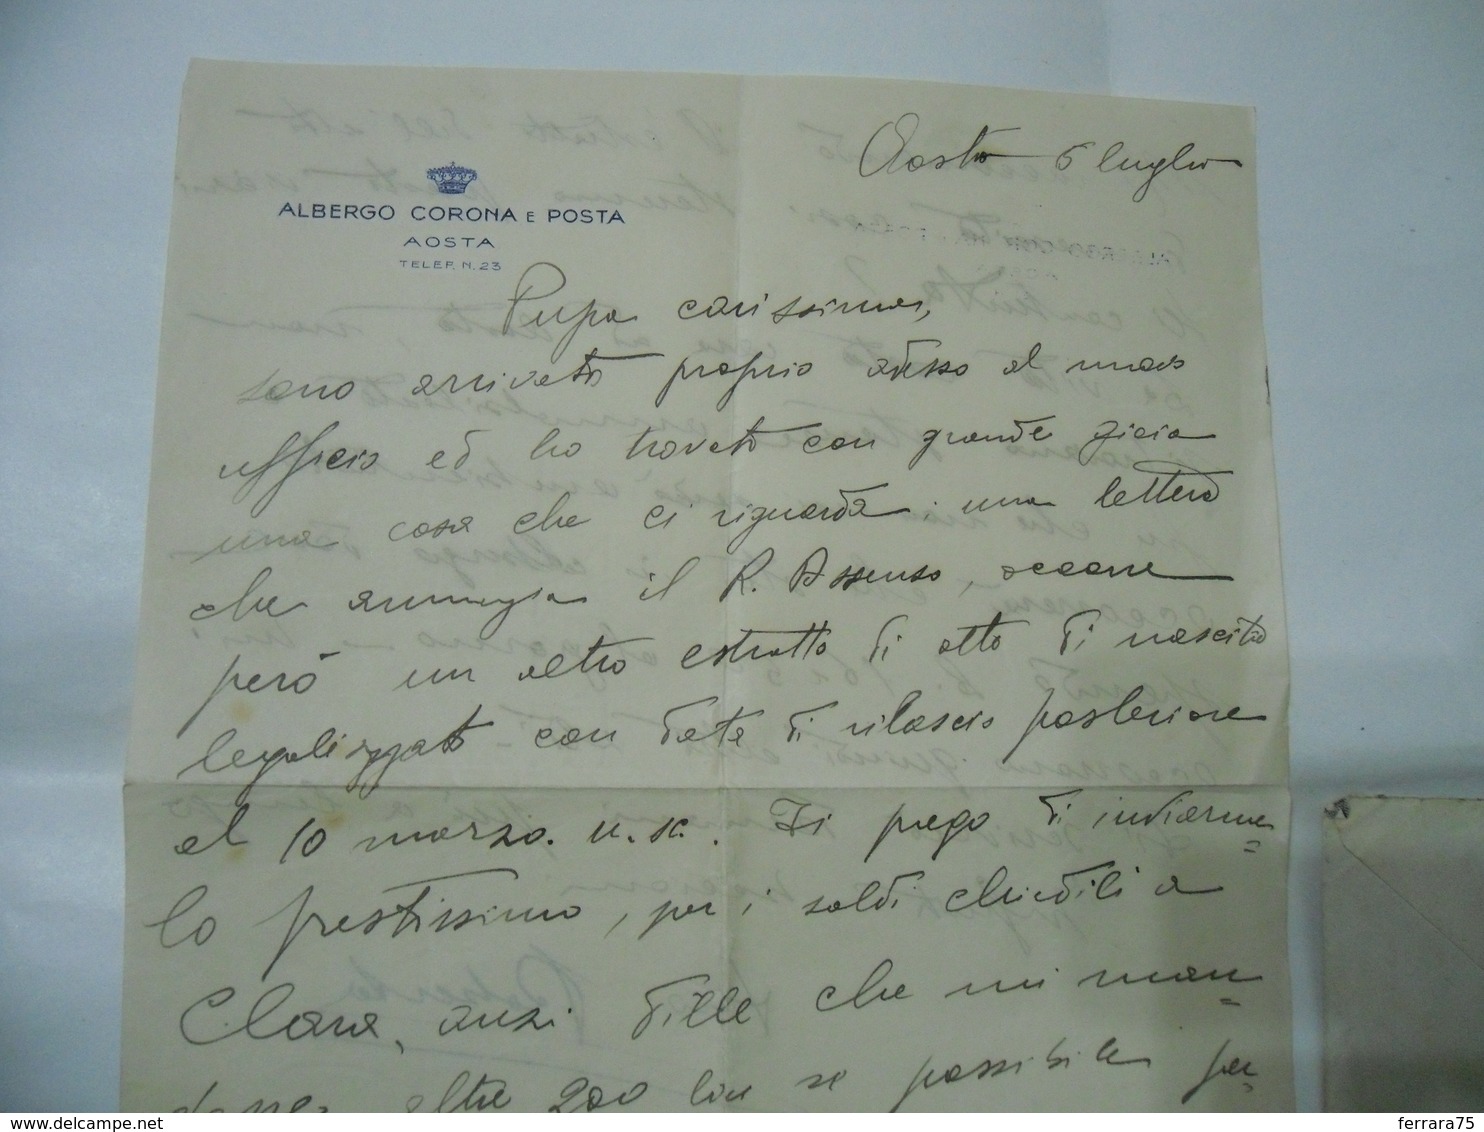 Aosta 6 luglio
ALBERGO CORONA E POSTA
AOSTA
TELEF. N. 23
Pupa carissima,
sono arrivato proprio adesso al mio
ufficio ed ho trovato con grande gioia
una cosa che ci riguarda una lettera
che annunzia il R. Assenso, occorre
però un altro estratto di atto di nascita
legalizzato con data di rilascio posteriore
al 10 marzo u. sc. Ti prego di inviarme=
lo prestissimo, per i soldi chiedili a
Clara, anzi dille che mi man=
altre 200 lire se possibile per
www.delcampe.net
ferrara75